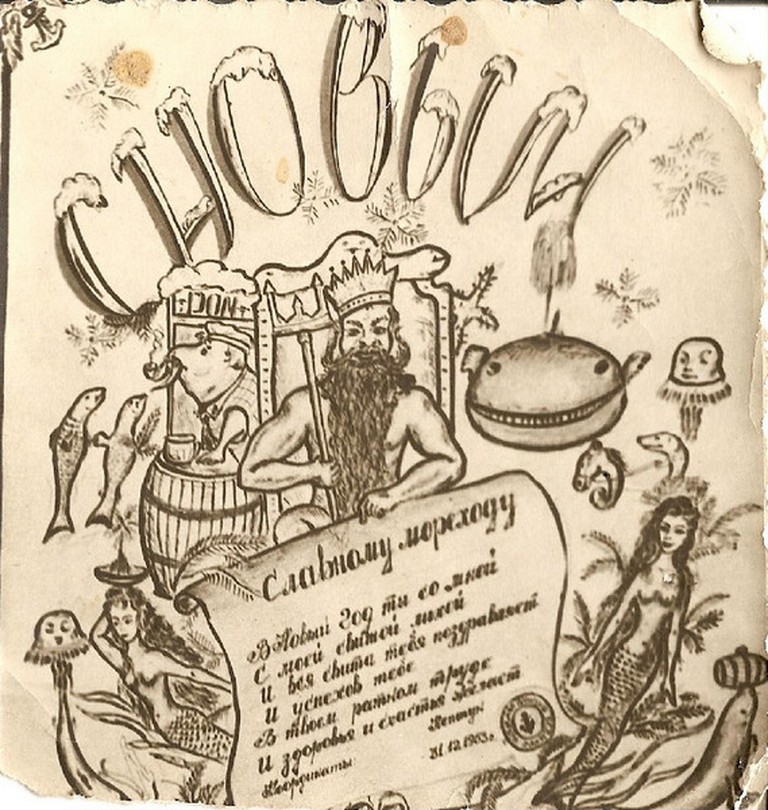 С НОВЫМ
ДОN
Славному мореходу
В Новый год ты со мной
С моей свитой лихой
И вся свита тебя поздравляет
И успехов тебе
В твоем ратном труде
И здоровья и счастья желает
Нептун
31.12.1963г.
Координаты: